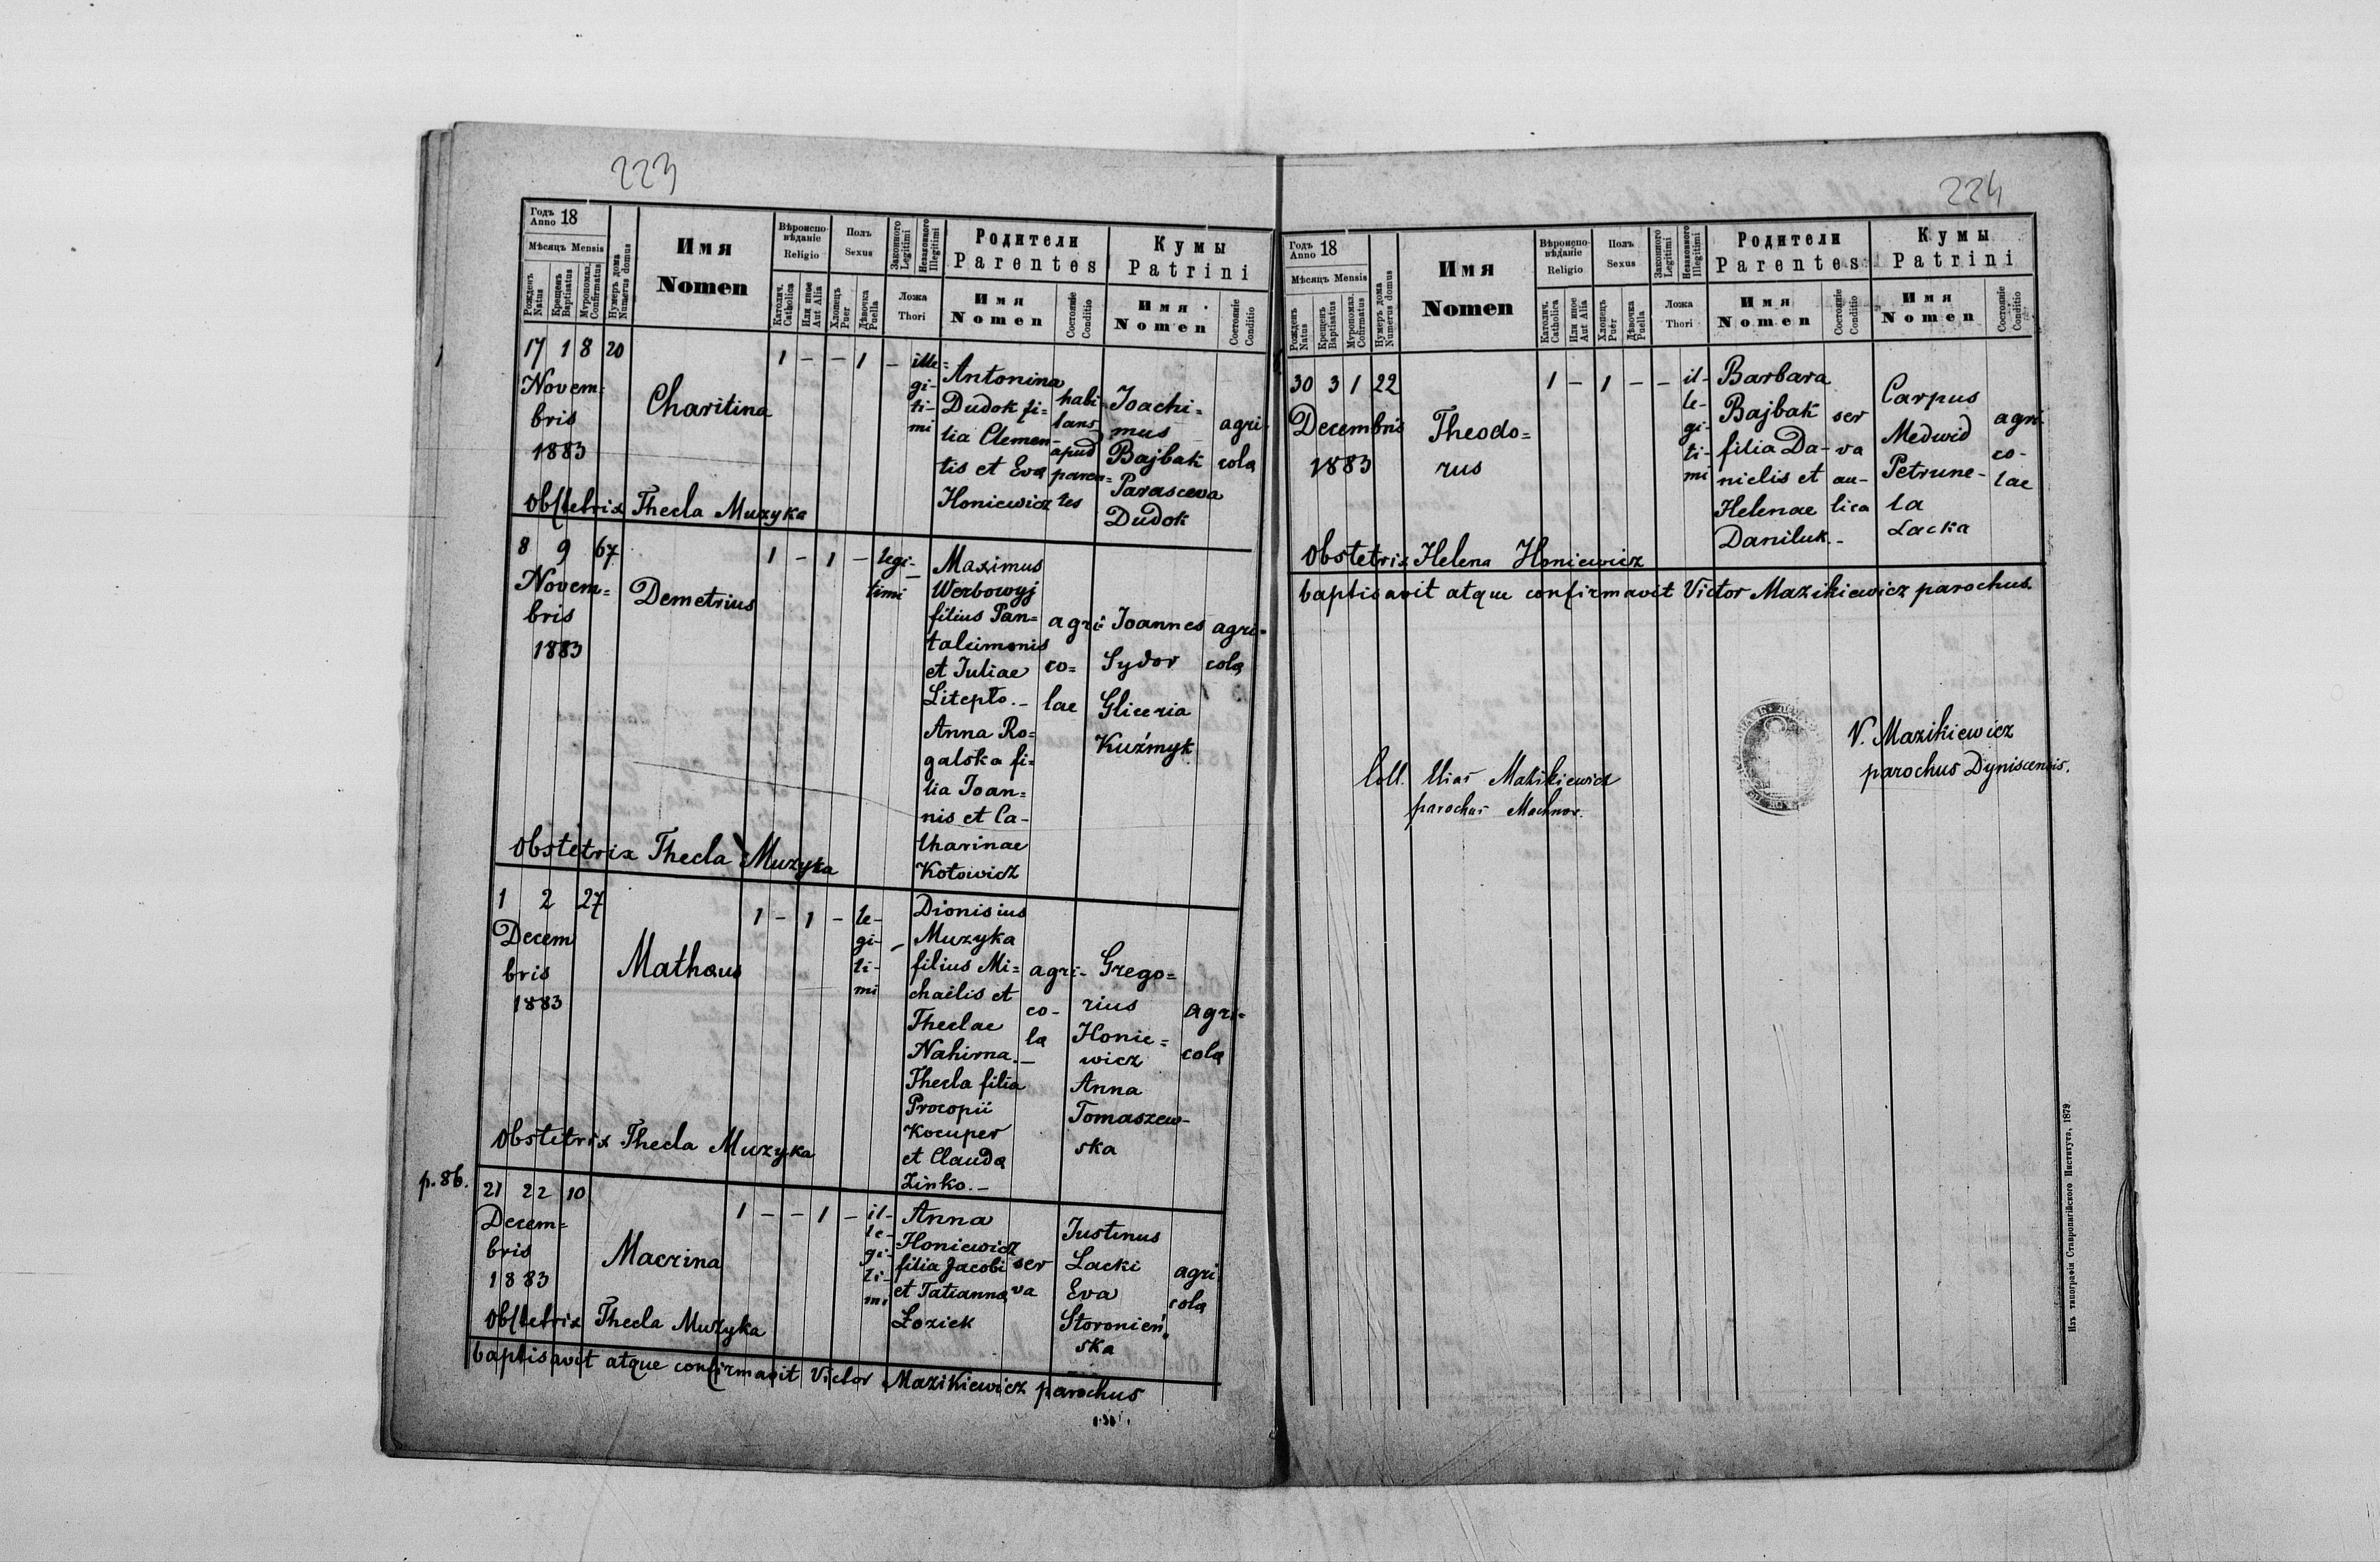 223
Годъ Anno 18
Мѣсяцъ Mensis
Рожденъ Natus
Крещенъ Baptisatus
Мѵропомаз. Confirmatus
Нумеръ дома Numerus domus
Имя
Nomen
Вѣроиспо-
вѣданіе
Religio
Католич. Catholica
Или иное Aut Alia
Полъ
Sexus
Хлопець Puer
Дѣвочка Puella
Законного Legitimi
Незаконного Illegitimi
Ложа
Thori
Родители
Parentes
Имя
Nomen
Состояніе Conditio
Кумы
Patrini
Имя
Nomen
Состояніе Conditio
17 18 20
Novem-
bris
1883
Charitina
1 - - 1 -
ille-
gi-
ti-
mi
Antonina
Dudok fi-
lia Clemen-
tis et Eva
Honiewicz
habi
tans
apud
paren-
tes
Joachi-
mus
Bajbak
Parasceva
Dudok
agri-
cola
Obstetrix Thecla Muzyka
8 9 67
Novem-
bris
1883
Demetrius
1 - 1 -
legi-
timi
-
Maximus
Werbowyj
filius Pan-
taleimonis
et Juliae
Litepło.-
Anna Ro-
galska fi-
lia Joan-
nis et Ca-
tharinae
Kotowicz
agri-
co-
lae
Joannes
Sydor
Gliceria
Kuźmyk
agri-
cola
Obstetrix Thecla Muzyka
1 2 27
Decem
bris
1883
Mathaus
1 - 1 -
le-
gi-
ti-
mi
-
Dionisius
Muzyka
filius Mi-
chaelis et
Theclae
Nahirna.-
Thecla filia
Procopii
Kocuper
et Clauda
Zinko.-
agri-
co-
la
Grego-
rius
Honie-
wicz
Anna
Tomaszew-
ska
agri-
cola
Obstetrix Thecla Muzyka
p. 86.
21 22 10
Decem-
bris
1883
Macrina
1 - - 1 -
il-
le-
gi-
ti-
mi
Anna
Honiewicz
filia Jacobi
et Tatianna
Łoziek
ser
va
Justinus
Lacki
Eva
Storonień-
ska
agri
cola
Obstetrix Thecla Muzyka
baptisavit atque confirmavit Victor Mazikiewicz parochus
224
Годъ Anno 18
Мѣсяцъ Mensis
Рожденъ Natus
Крещенъ Baptisatus
Мѵропомаз. Confirmatus
Нумеръ дома Numerus domus
Имя
Nomen
Вѣроиспо-
вѣданіе
Religio
Католич. Catholica
Или иное Aut Alia
Полъ
Sexus
Хлопець Puer
Дѣвочка Puella
Законного Legitimi
Незаконного Illegitimi
Ложа
Thori
Родители
Parentes
Имя
Nomen
Состояніе Conditio
Кумы
Patrini
Имя
Nomen
Состояніе Conditio
30 31 22
Decembris
1883
Theodo-
rus
1 - 1 - -
il-
le-
gi-
ti-
mi
Barbara
Bajbak
filia Da-
nielis et
Helenae
Daniluk.-
ser
va
au-
lica
Carpus
Medwid
Petrune-
la
Lacka
agri-
co-
lae
Obstetrix Helena Honiewicz
baptisavit atque confirmavit Victor Mazikiewicz parochus.
V. Mazikiewicz
parochus Dyniscensis.
Coll. Elias Mazikiewicz
parochus Machnov.
Изъ типографіи Ставропигійского Института, 1879